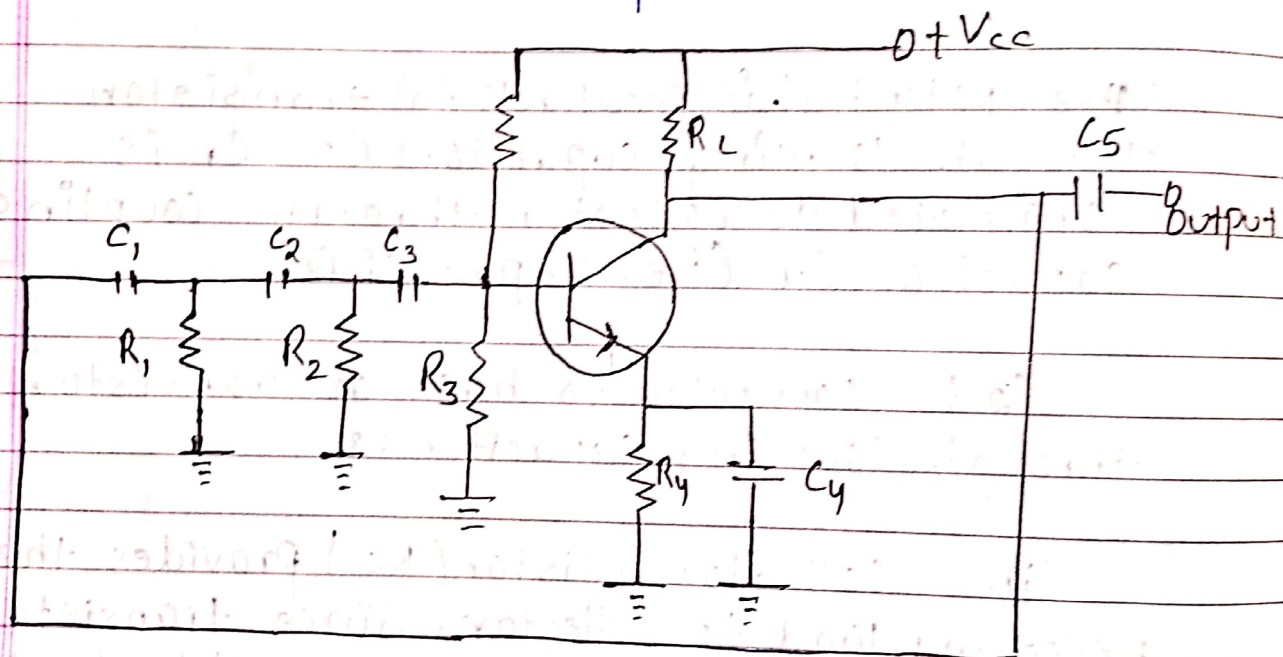 + Vcc
RL
C5
Output
C1
C2
C3
R1
R2
R3
R4
C4